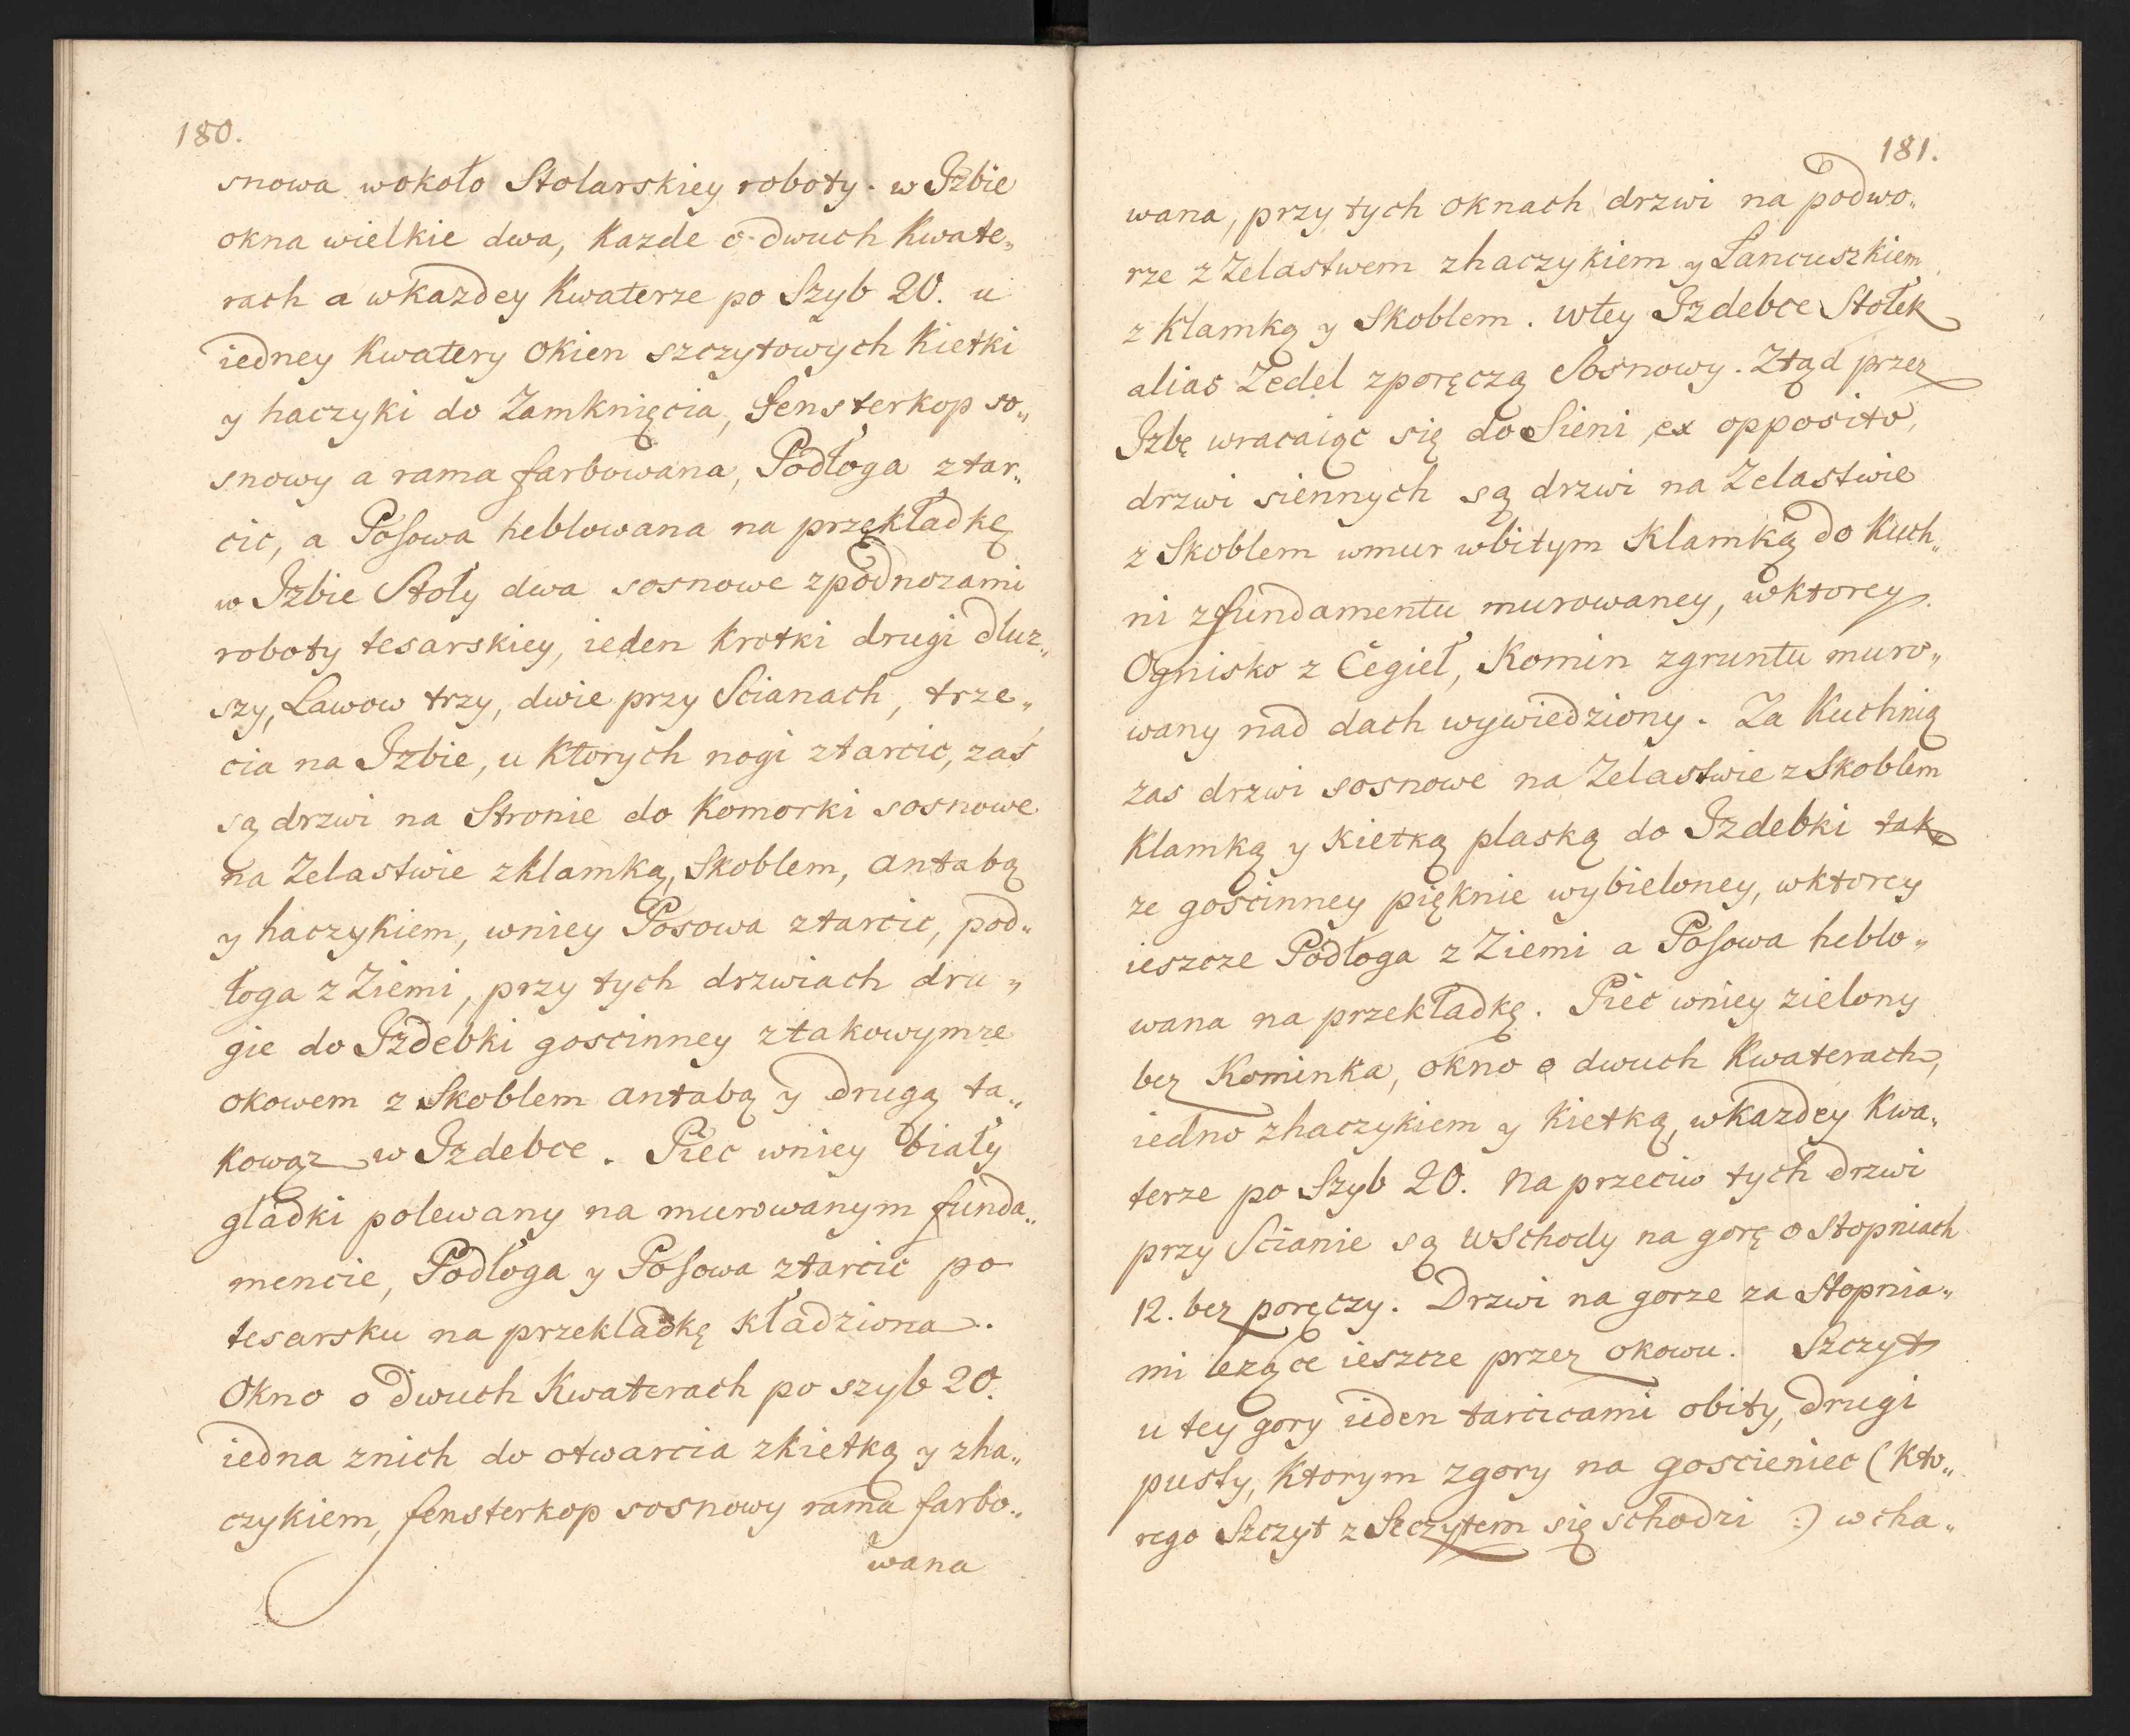 180.
snowa wokoło Stolarskiey roboty. w Izbie
okna wielkie dwa, Kazde o dwuch Kwate„
rach a wkazdey Kwaterze po Szyb 20. u
iedney Kwatery Okien szczytowych Kietki
y haczyki do Zamknięcia, Fensterkop so„
snowy a rama farbowana, Podłoga ztar„
cic, a Posowa heblowana na przękładkę
w Izbie Stoły dwa sosnowe zpodnozami
roboty tesarskiey, ieden Krotki drugi dluz„
szy, Lawow trzy, dwie przy Scianach, trze„
cia na Izbie, u Ktorych nogi ztarcic, zaś
są drzwi na Stronie do Komorki sosnowe
na Zelastwie zklamką, Skoblem, antabą
y haczykiem, wniey Posowa ztarcic, pod„
łoga z Ziemi, przy tych drzwiach dru„
gie do Izdebki goscinney ztakowymze
okowem z Skoblem antabą y drugą ta„
kowąz w Izdebce. Piec wniey biały
gladki polewany na murowanym funda„
mencie, Podłoga y Posowa ztarcic po
tesarsku na przekladkę kładziona.
Okno o dwuch Kwaterach po szyb 20.
iedna znich do otwarcia zkietką y zha„
czykiem, fensterkop sosnowy rama farbo„
wana
181.
wana, przy tych oknach drzwi na podwo„
rze z Zelastwem zhaczykiem y Łancuszkiem
z Klamką y Skoblem. wtey Izdebce Stołek
alias Zedel zporęczą Sosnowy. Ztąd przez
Izbę wracaiąc się do Sieni ex opposito,
drzwi siennych są drzwi na Zelastwie
z Skoblem wmur wbitym Klamką do Kuch„
ni zfundamentu murowaney, wktorey
Ognisko z Cegieł, Komin zgruntu muro„
wany nad dach wywiedziony. Za Kuchnią
zas drzwi sosnowe na Zelastwie z Skoblem
Klamką y Kietką plaską do Izdebki tak
ze goscinney pięknie wybieloney, wktorey
ieszcze Podłoga z Ziemi a Posowa heblo„
wana na przekładkę. Piec wniey zielony
bez Kominka, okno o dwuch Kwaterach,
iedno zhaczykiem y Kietką, wKazdey Kwa„
terze po Szyb 20. Na przeciw tych drzwi
przy Scianie są Wschody na gorę o Stopniach
12. bez poręczy. Drzwi na gorze za Stopnia„
mi lezące ieszcze przez okowu. Szczyt
u tey gory ieden tarcicami obity, drugi
pusty, Ktorym zgory na goscieniec (Kto„
rego Szczyt z Szczytem się schodzi :) wcha„